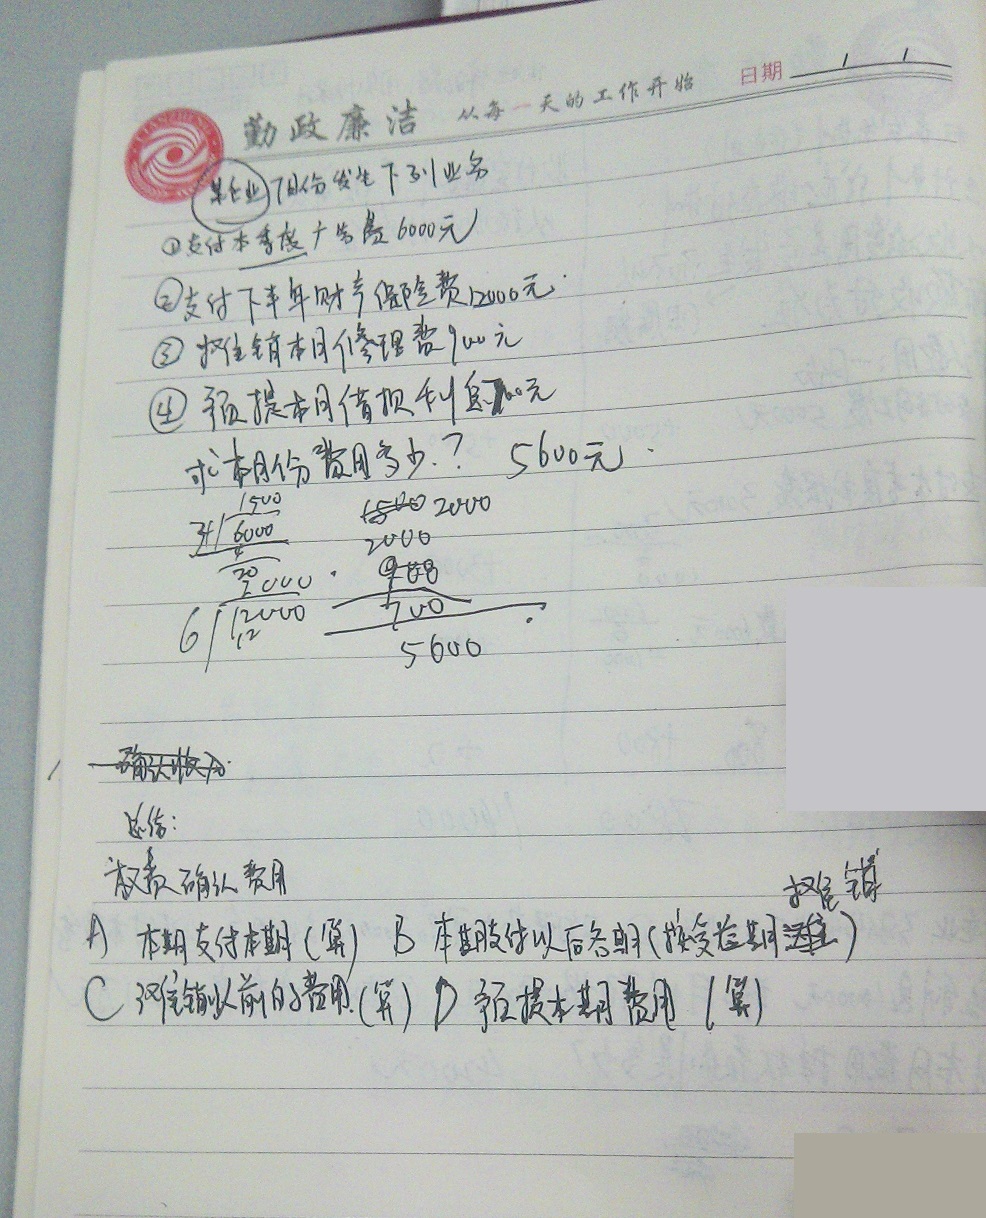 勤政廉洁 从每一天的工作开始 日期 / /
某企业7月份发生下列业务
①支付本季度广告费6000元
②支付下半年财产保险费12000元.
③摊销本月修理费900元
④预提本月借损利息700元
求本月份费用多少.? 5600元.
1500
6000
2000
2000
900
2000
6 12000
12
700
5600
确认收入
总结:
权责确认费用
摊销
A 本期支付本期(算) B 本期支付以后各期(按受益期)
C 摊销以前的费用.(算) D 预提本期费用(算)